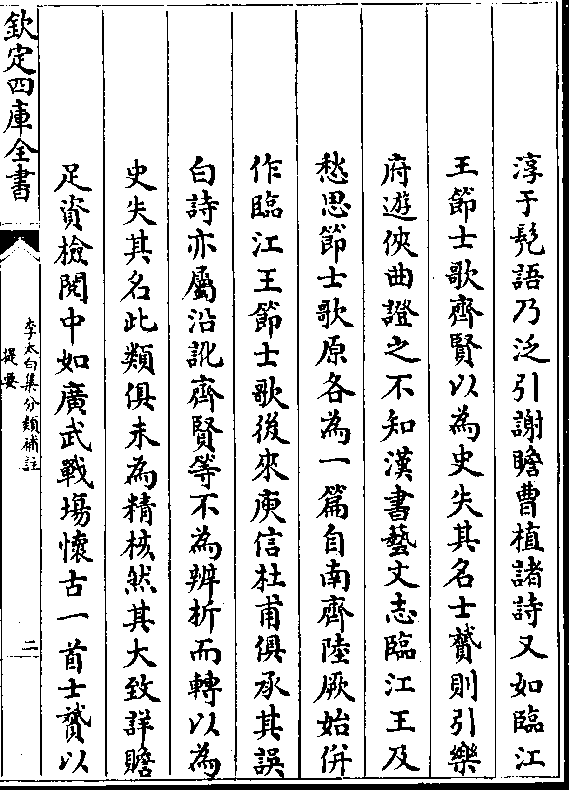 淳于髠語乃泛引謝瞻曹植諸詩又如臨江
王節士歌齊賢以為史失其名士贇則引樂
府遊俠曲證之不知漢書藝文志臨江王及
愁思節士歌原各為一篇自南齊陸厥始併
作臨江王節士歌後來庾信杜甫俱承其誤
白詩亦屬沿訛齊賢等不為辨析而轉以為
史失其名此類俱未為精核然其大致詳贍
足資檢閱中如廣武戰塲懷古一首士贇以
欽定四庫全書
李太白集分類補註
提要
二